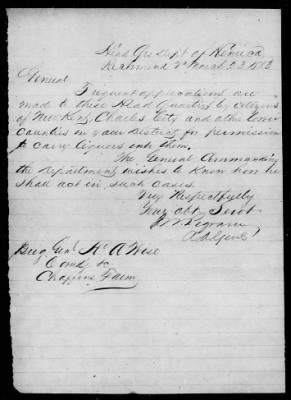 Head Qrs Dept of Henrico
Richmond Va March 23 1863
General
Frequent applications are
made to these Head Quarters by citizens
of New Kent, Charles City and other
Counties in your District for permission
to carry liquors into them.
The General Commanding
the Department wishes to know how he
shall act in such cases.
Very Respectfully
Your obt Servt
Pegram
A A Genl
Brig Genl H. A Wise
Comdg &c
Chaffins Farm